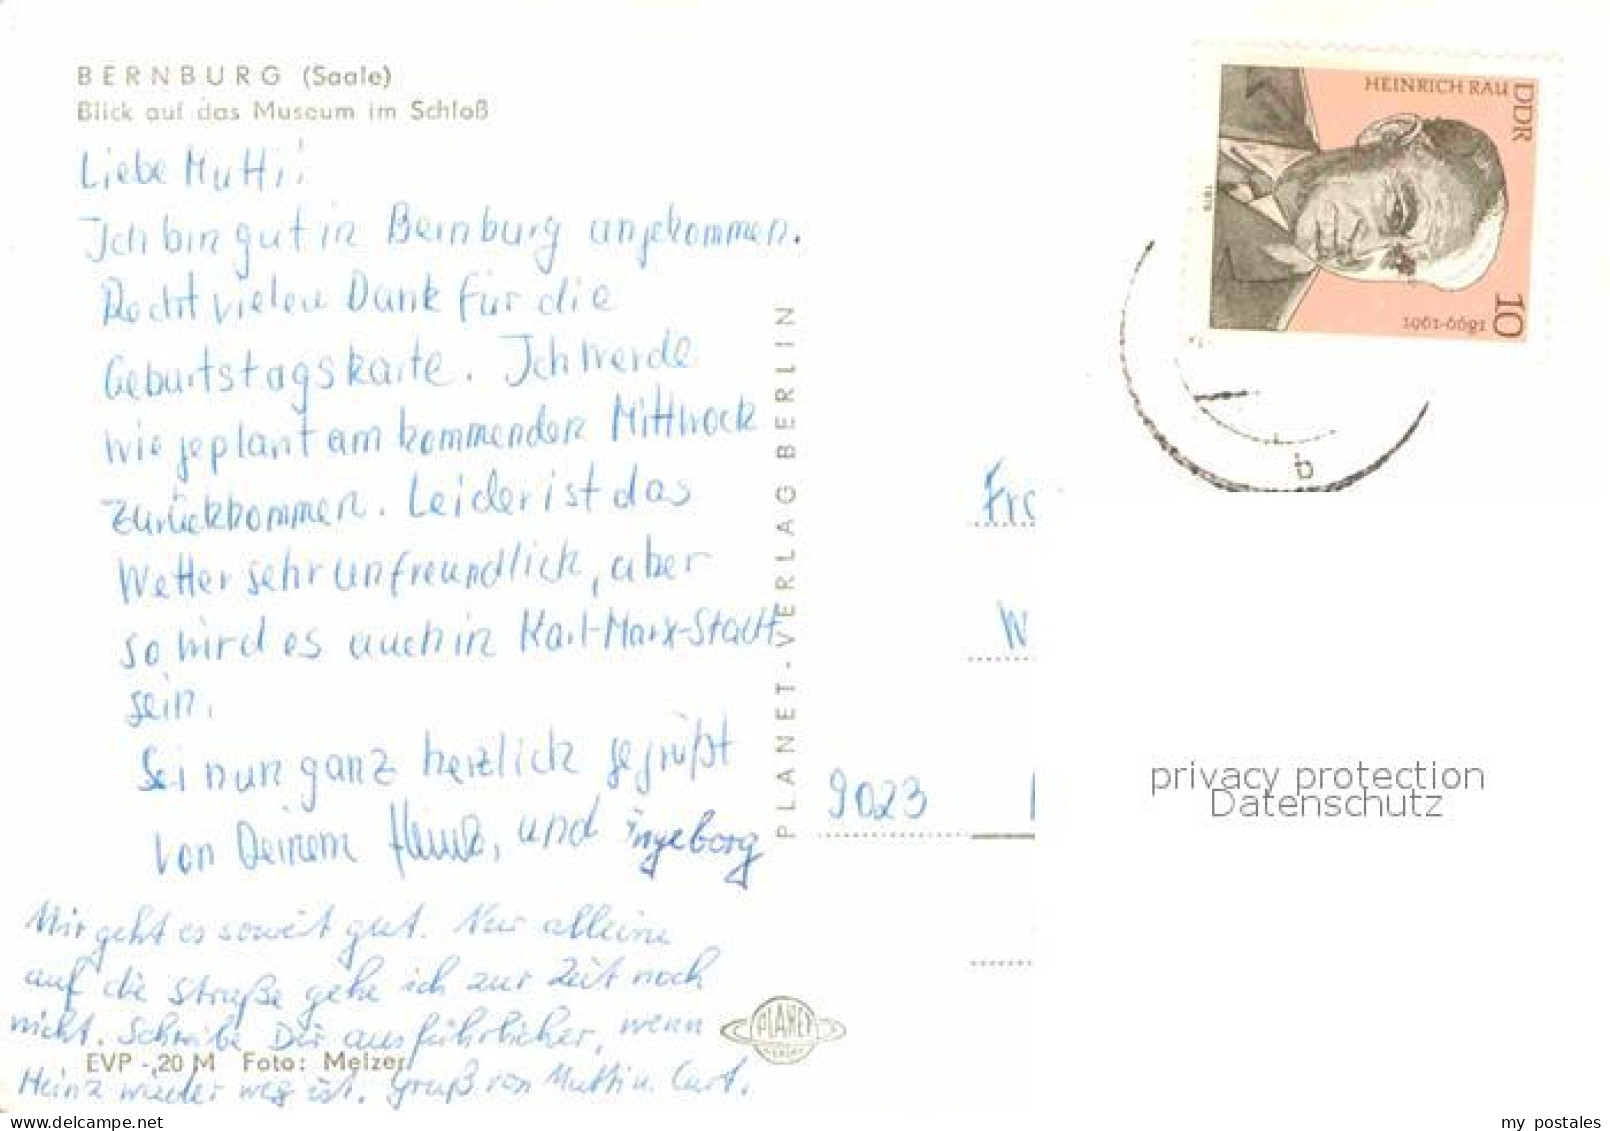 BERNBURG (Saale)
Blick auf das Museum im Schloß
Liebe Mutti!
Ich bin gut in Bernburg angekommen.
Recht vielen Dank für die
Geburtstagskarte. Ich werde
wie geplant am kommenden Mittwoch
zurückkommen. Leider ist das
Wetter sehr unfreundlich, aber
so wird es auch in Karl-Marx-Stadt
sein.
Sei nun ganz herzlich gegrüßt
von Deinem Heinz, und Ingeborg
Mir geht es soweit gut. Nur alleine
auf die Straße gehe ich zur Zeit noch
nicht. Schreibe Dir ausführlicher, wenn
Heinz wieder weg ist. Gruß von Mutti u. Curt.
EVP -,20 M Foto: Melzer
PLANET-VERLAG BERLIN
PLANET
VERLAG
DDR
HEINRICH RAU
1899-1961
10
1979
b
Fra
W
9023
privacy protection
Datenschutz
delcampe.net
my postales